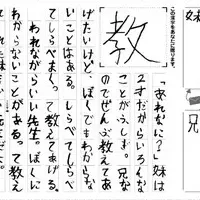 この漢字をあなたに贈ります。
教
「あれなに？」妹は
２才だからいろんな
ことがふしぎ。兄な
のでぜんぶ教えてあ
げたいけど、ぼくでもわからな
いことはある。しらべてしらべ
てしらべまくって教えてあげる。
われながらいい先生。ぼくに
わからないことがある。って教え
兄